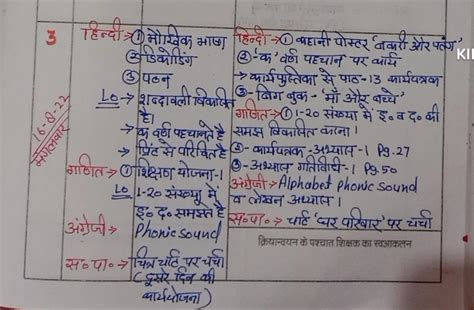 3
16-8-22
मंगलवार
हिन्दी → ① मौखिक भाषा
② डिकोडिंग
③ पठन
LO → शब्दावली विकसित
है।
→ क वर्ण पहचानते है
→ प्रिंट से परिचित है
गणित → ① शिक्षण योजना-1
LO 1-20 संख्या में
इ० द० समझते है
अंग्रेजी → Phonic sound
स० पा० → चित्र चार्ट पर चर्चा
(दूसरे दिन की
कार्ययोजना)
हिन्दी → ① कहानी पोस्टर 'बकरी और पत्ता'
② 'क' वर्ण पहचान पर कार्य
→ कार्यपुस्तिका से पाठ-13 कार्यपत्रक
③ बिग बुक - 'माँ और बच्चे'
गणित → ① 1-20 संख्या में इ० व द० की
समझ विकसित करना।
② कार्यपत्रक - अभ्यास-1 Pg.27
③ अभ्यास गतिविधि-1 Pg.50
अंग्रेजी → Alphabet phonic sound
व लेखन अभ्यास।
स० पा० → चार्ट 'घर परिवार' पर चर्चा
क्रियान्वयन के पश्चात शिक्षक का स्वआकलन
KI